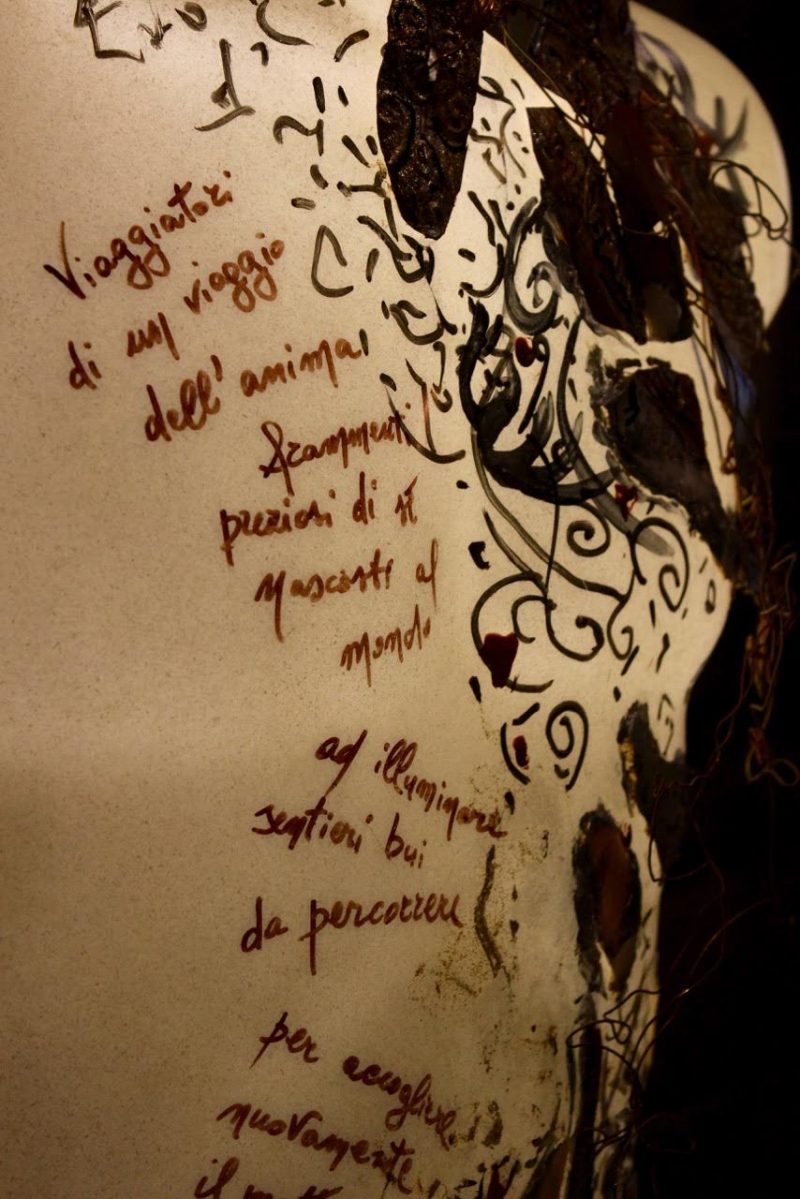 Viaggiatori
di un viaggio
dell'anima
frammenti
preziosi di sé
nascosti al
mondo
ad illuminare
sentieri bui
da percorrere
per accogliere
nuovamente
il